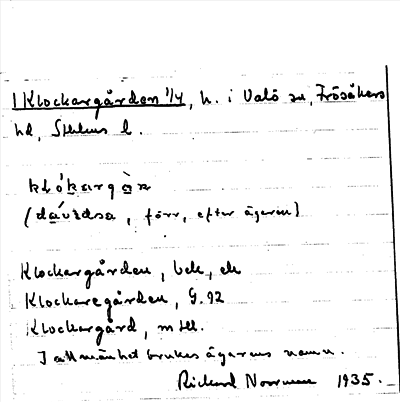 1 Klockargården 1/4, h. i Valö sn, Frösåkers
hd, Sthlms l.
klókargàɳ
(dávidsa, förr, efter ägaren)
Klockargården, bck, ek
Klockaregården, G. 92
Klockargård, mtll.
I allmänhet brukes ägarens namn.
Rickard Norrman 1935.